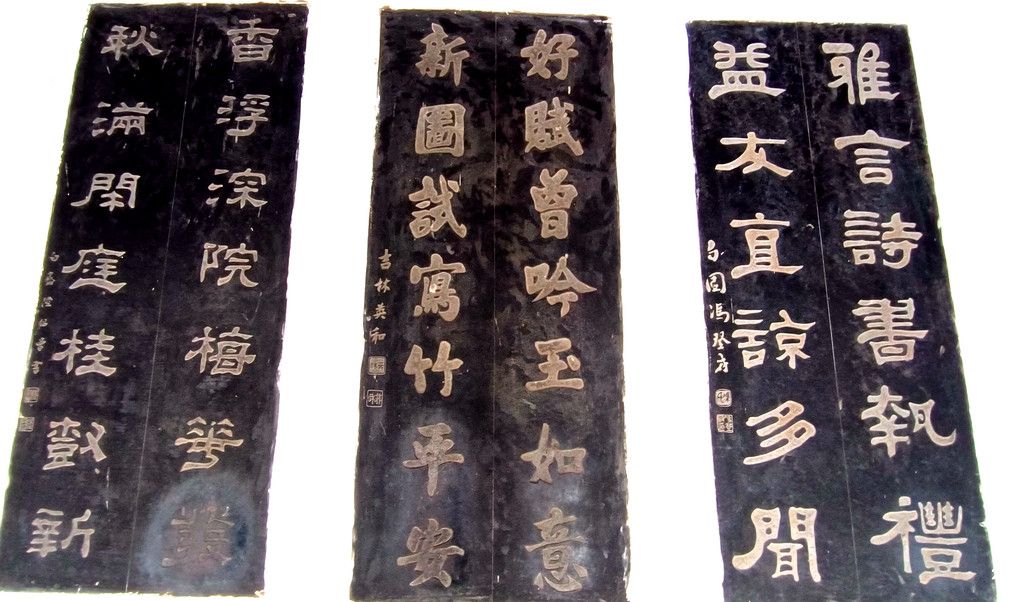 雅言詩書執禮
益友直諒多聞
勺園馮登府
好賦曾吟玉如意
新圖試寫竹平安
吉林英和
香浮深院梅華叢
秋滿閑庭桂新